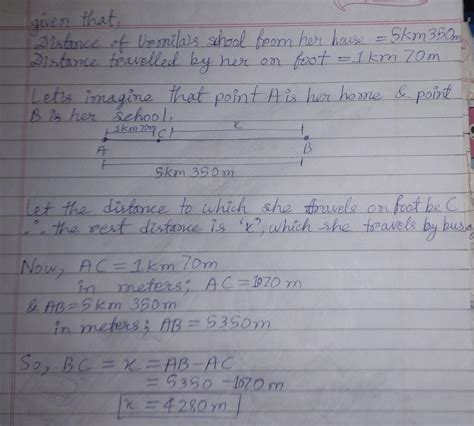 given that,
Distance of Urmila's shool from her house = 5km350m
Distance travelled by her on foot = 1km 70m
Let's imagine that point A is her home & point
B is her school,
1km70m C x
A B
5km 350m
Let the distance to which she travels on foot be C
∴ the rest distance is 'x', which she travels by bus
Now, AC = 1km 70m
in meters; AC = 1070m
& AB = 5km 350m
in meters; AB = 5350m
So, BC = x = AB-AC
= 5350 - 1070m
x = 4280m